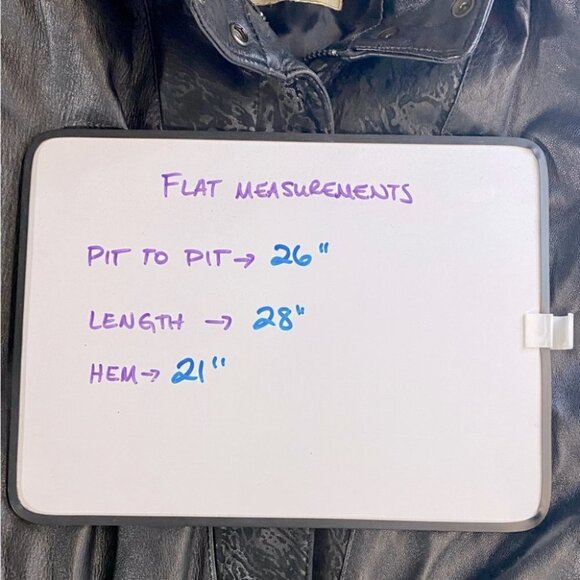 FLAT MEASUREMENTS
PIT TO PIT → 26"
LENGTH → 28"
HEM → 21"